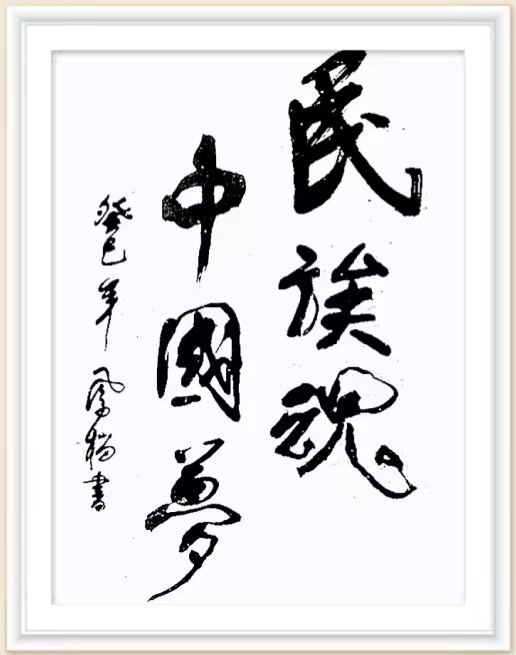 民族魂
中國夢
癸巳年 鳳梧書